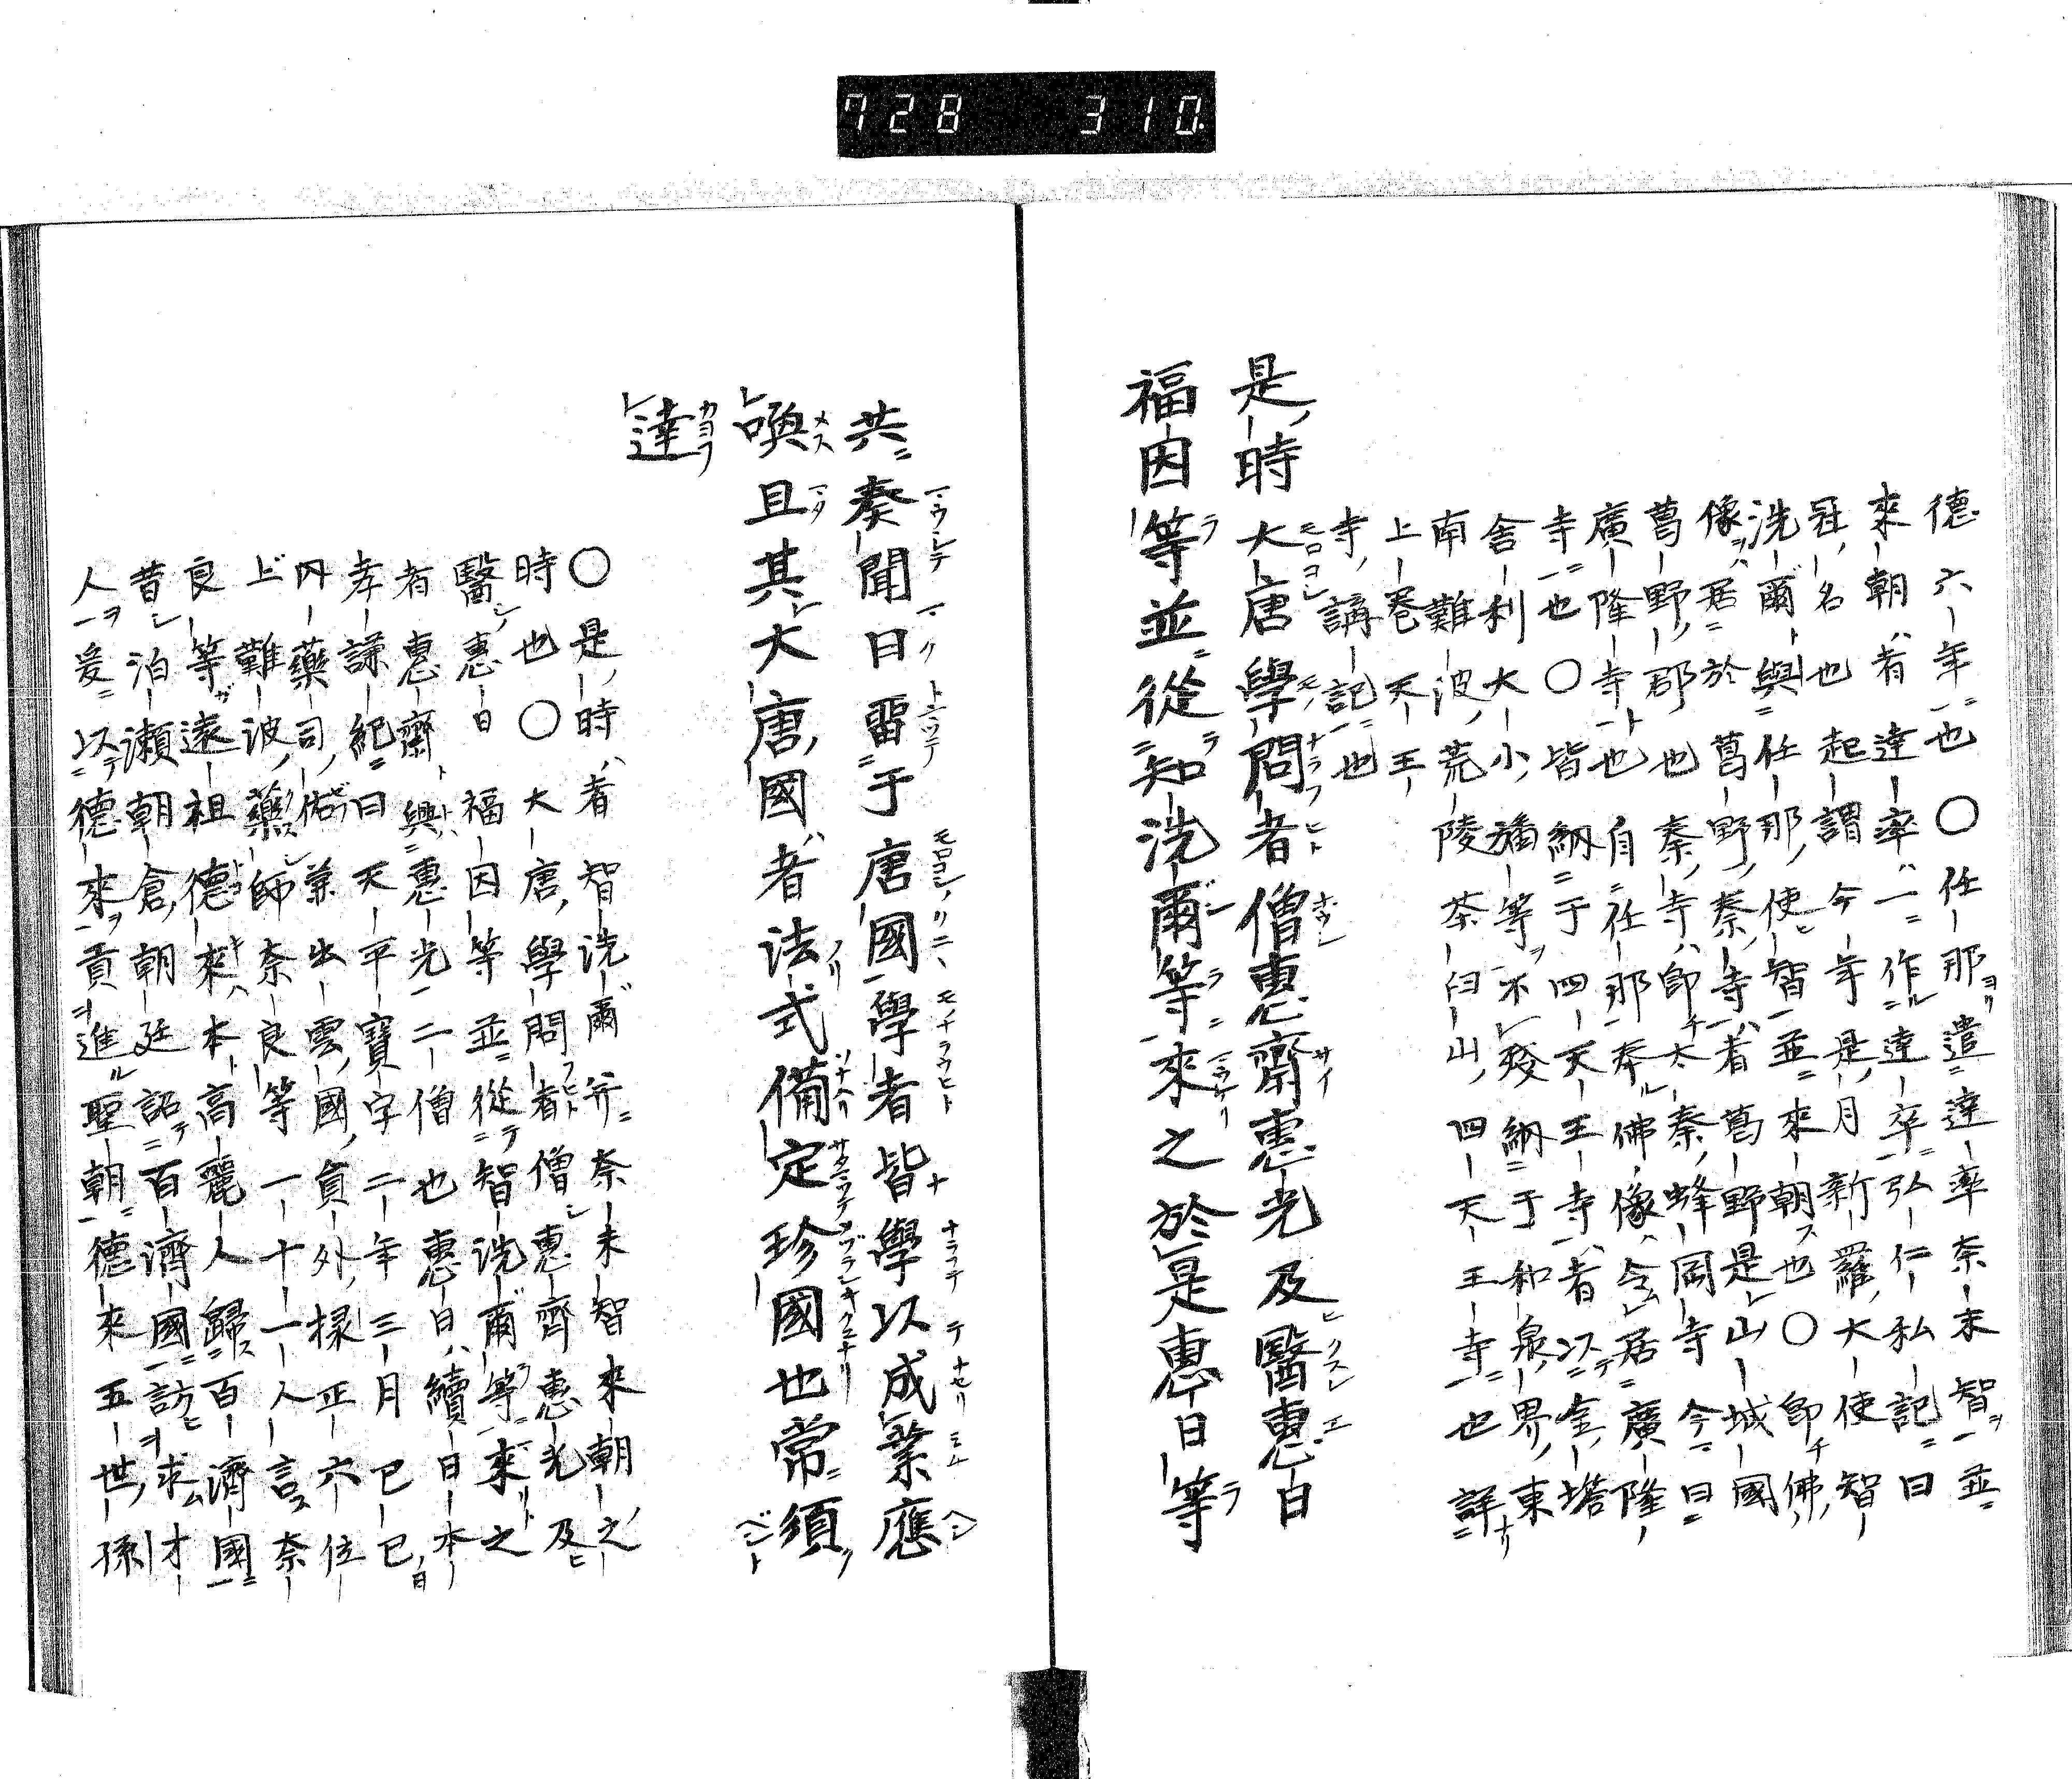 728 310.
德六年也○任那遣達率奈未智並
來朝者達率一作達卒弘仁私記曰
冠名也起謂今年是月新羅大使智
洗爾與任那使智並來朝也○即佛
像居於葛野秦寺者葛野是山城國
葛野郡也秦寺即太秦蜂岡寺今曰
廣隆寺也自任那奉佛像令居廣隆
寺也○皆納于四天王寺者以金塔
舍利大小旛等不殘納于和泉界東
南難波荒陵荼臼山四天王寺也詳
上巻天王
寺講記也
是時大唐學問者僧惠齋惠光及醫惠日
福因等並從知洗爾等來之於是惠日等
共奏聞曰畱于唐國學者皆學以成業應
喚且其大唐國者法式備定珍國也常須
達
○是時者智洗爾并奈未智來朝之
時也○大唐學問者僧惠齊惠光及
醫惠日福因等並從智洗爾等來之
者惠齋與惠光二僧也惠日續日本
孝謙紀曰天平寶字二年三月己巳
內藥司佑兼出雲國員外掾正六位
上難波藥師奈良等一十一人言奈
良等遠祖德來本高麗人歸百濟國
昔泊瀬朝倉朝廷詔百濟國訪求才
人爰以德來貢進聖朝德來五世孫